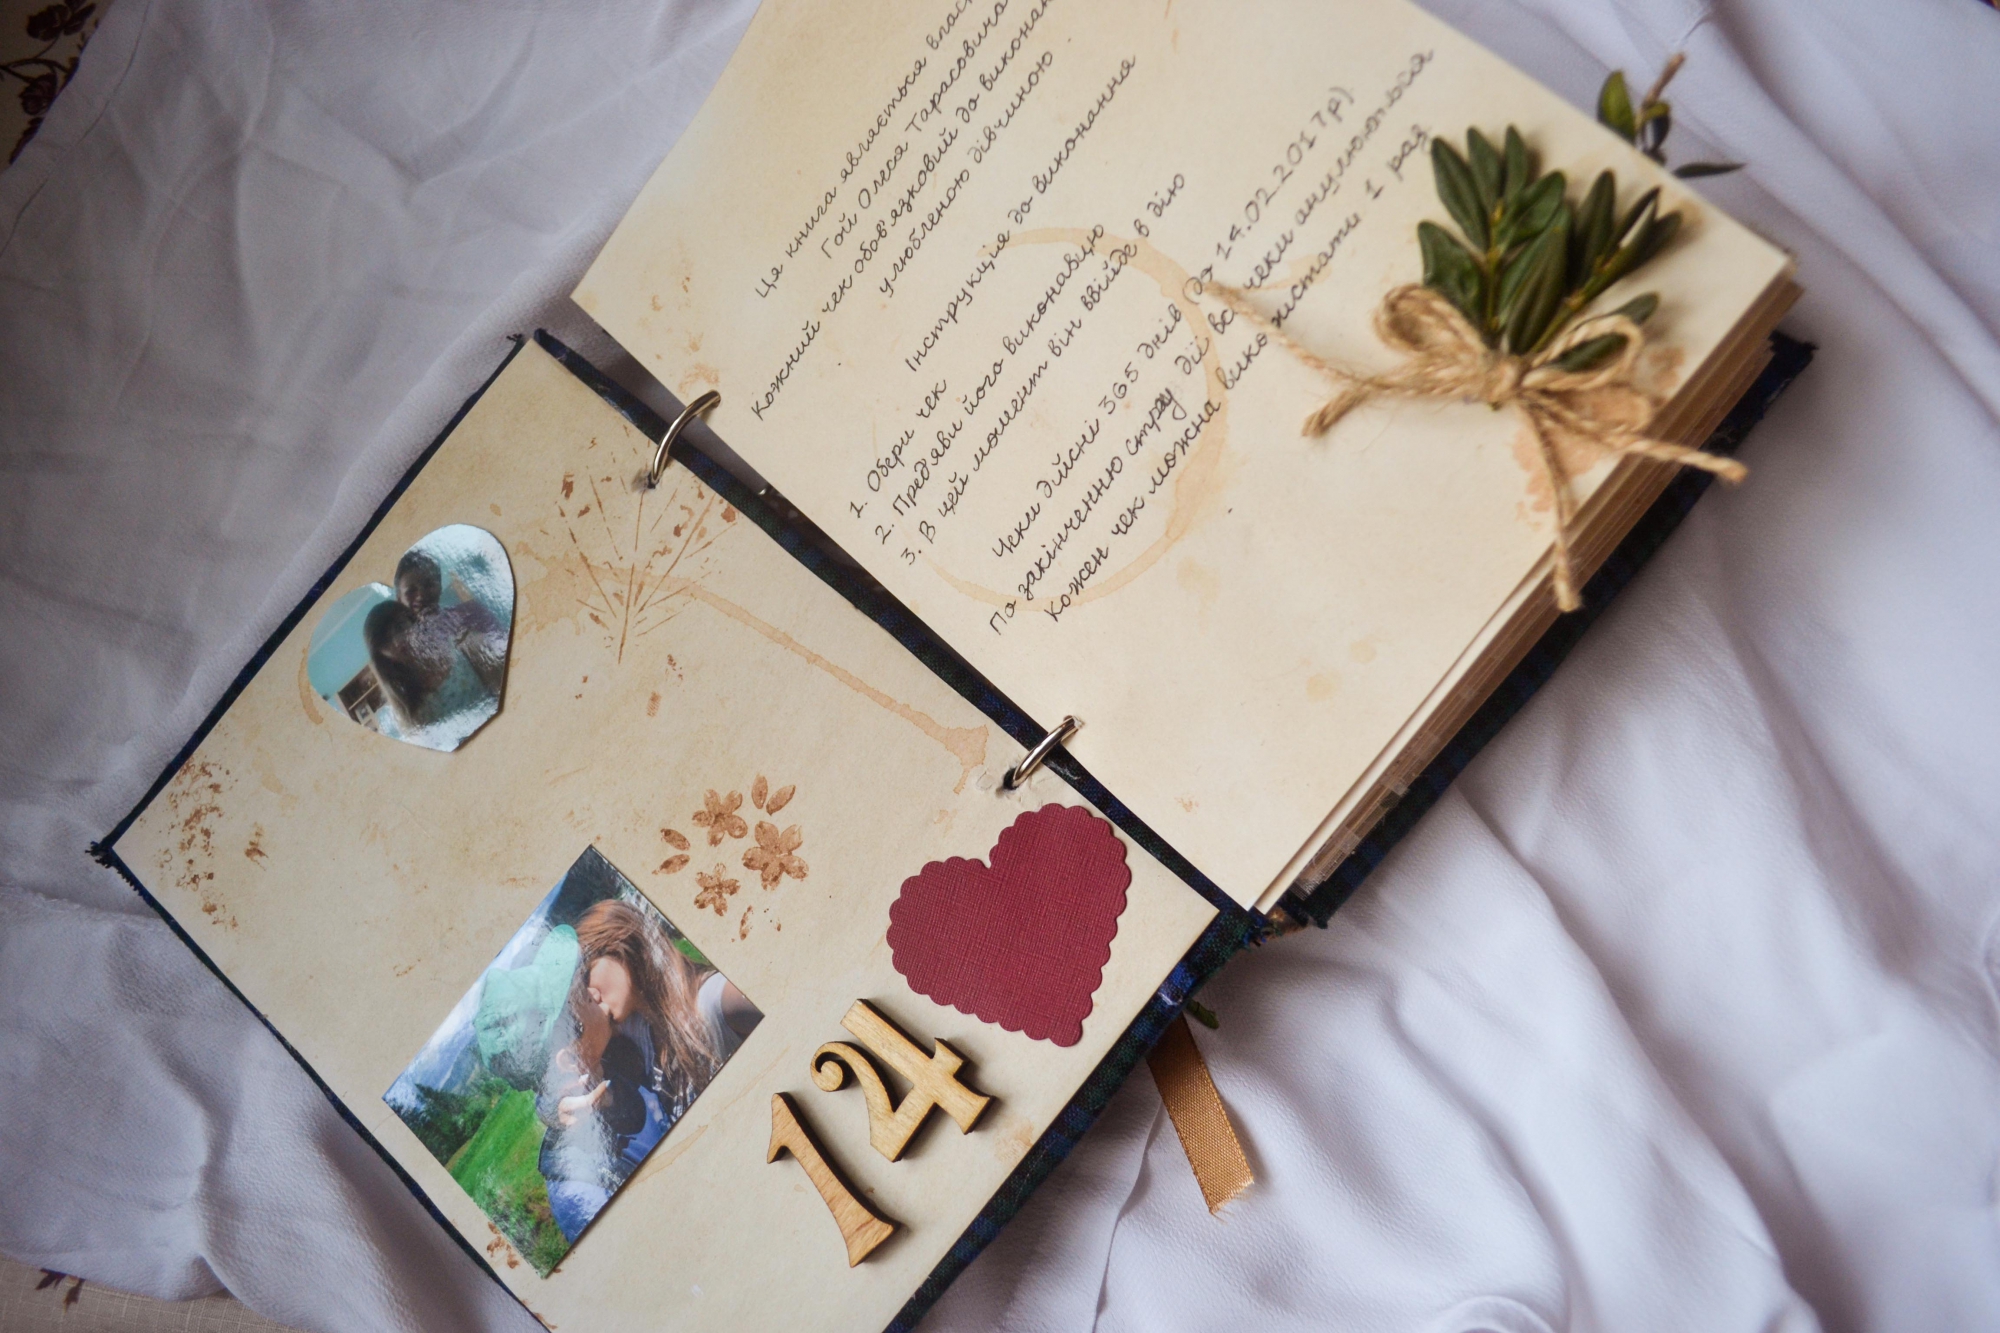 Ця книга являється власн
Гой Олеся Тарасовича
Кожний чек обов'язковий до виконан
улюбленою дівчиною
Інструкція до виконання
1. Обери чек
2. Предяви його виконавцю
3. В цей момент він ввійде в дію
Чеки дійсні 365 днів (до 14.02.2017р).
По закінченню строку дії всі чеки анулюються
Кожен чек можна використати 1 раз
14